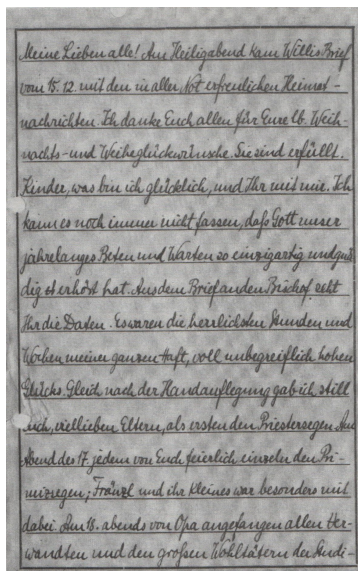 Meine Lieben alle! Am Heiligabend kam Willis Brief
vom 15.12. mit den in aller Not erfreulichen Heimat-
nachrichten. Ich danke Euch allen für Eure lb. Weih-
nachts- und Weiheglückwünsche. Sie sind erfüllt.
Kinder, was bin ich glücklich, und Ihr mit mir. Ich
kann es noch immer nicht fassen, daß Gott unser
jahrelanges Beten und Warten so einzigartig und gnä-
dig erhört hat. Aus dem Brief an den Bischof seht
Ihr die Daten. Es waren die herrlichsten Stunden und
Wochen meiner ganzen Haft, voll unbegreiflich hohen
Glücks. Gleich nach der Handauflegung gab ich still
Euch, viellieben Eltern, als ersten den Priestersegen. Am
Abend des 17. jedem von Euch feierlich einzeln den Pri-
mizsegen; Fränzl und ihr Kleines war besonders mit
dabei. Am 18. abends von Opa angefangen allen Ver-
wandten und den großen Wohltätern der Studi-